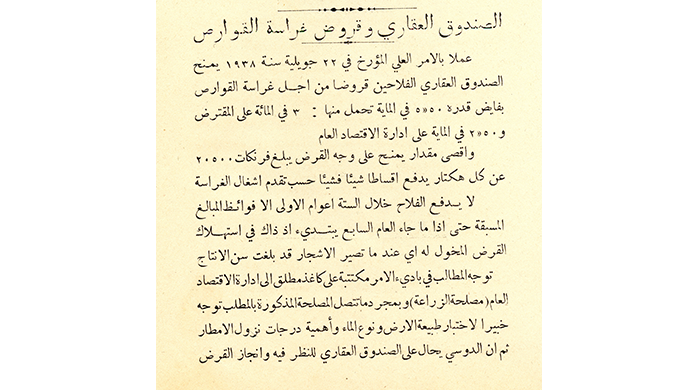 الصندوق العقاري وقروض غراسة القوارص
عملا بالامر العلي المؤرخ في ٢٢ جويلية سنة ١٩٣٨ يمنح
الصندوق العقاري الفلاحين قروضا من اجل غراسة القوارص
بفايض قدره ٥٠«٥ في الماية تحمل منها : ٣ في المائة على المقترض
و ٥٠«٢ في الماية على ادارة الاقتصاد العام
واقصى مقدار يمنح على وجه القرض يبلغ فرنكات ٢٠٥٠٠
عن كل هكتار يدفع اقساطا شيئا فشيئا حسب تقدم اشغال الغراسة
لا يدفع الفلاح خلال الستة اعوام الاولى الا فوائظ المبالغ
المسبقة حتى اذا ما جاء العام السابع يبتديء اذ ذاك في استهلاك
القرض المخول له اي عند ما تصير الاشجار قد بلغت سن الانتاج
توجه المطالب في باديء الامر مكتتبة على كاغذ مطلق الى ادارة الاقتصاد
العام (مصلحة الزراعة) وبمجرد ما تتصل المصلحة المذكورة بالمطلب توجه
خبيرا لاختبار طبيعة الارض ونوع الماء وأهمية درجات نزول الامطار
ثم ان الدوسي يحال على الصندوق العقاري للنظر فيه وانجاز القرض